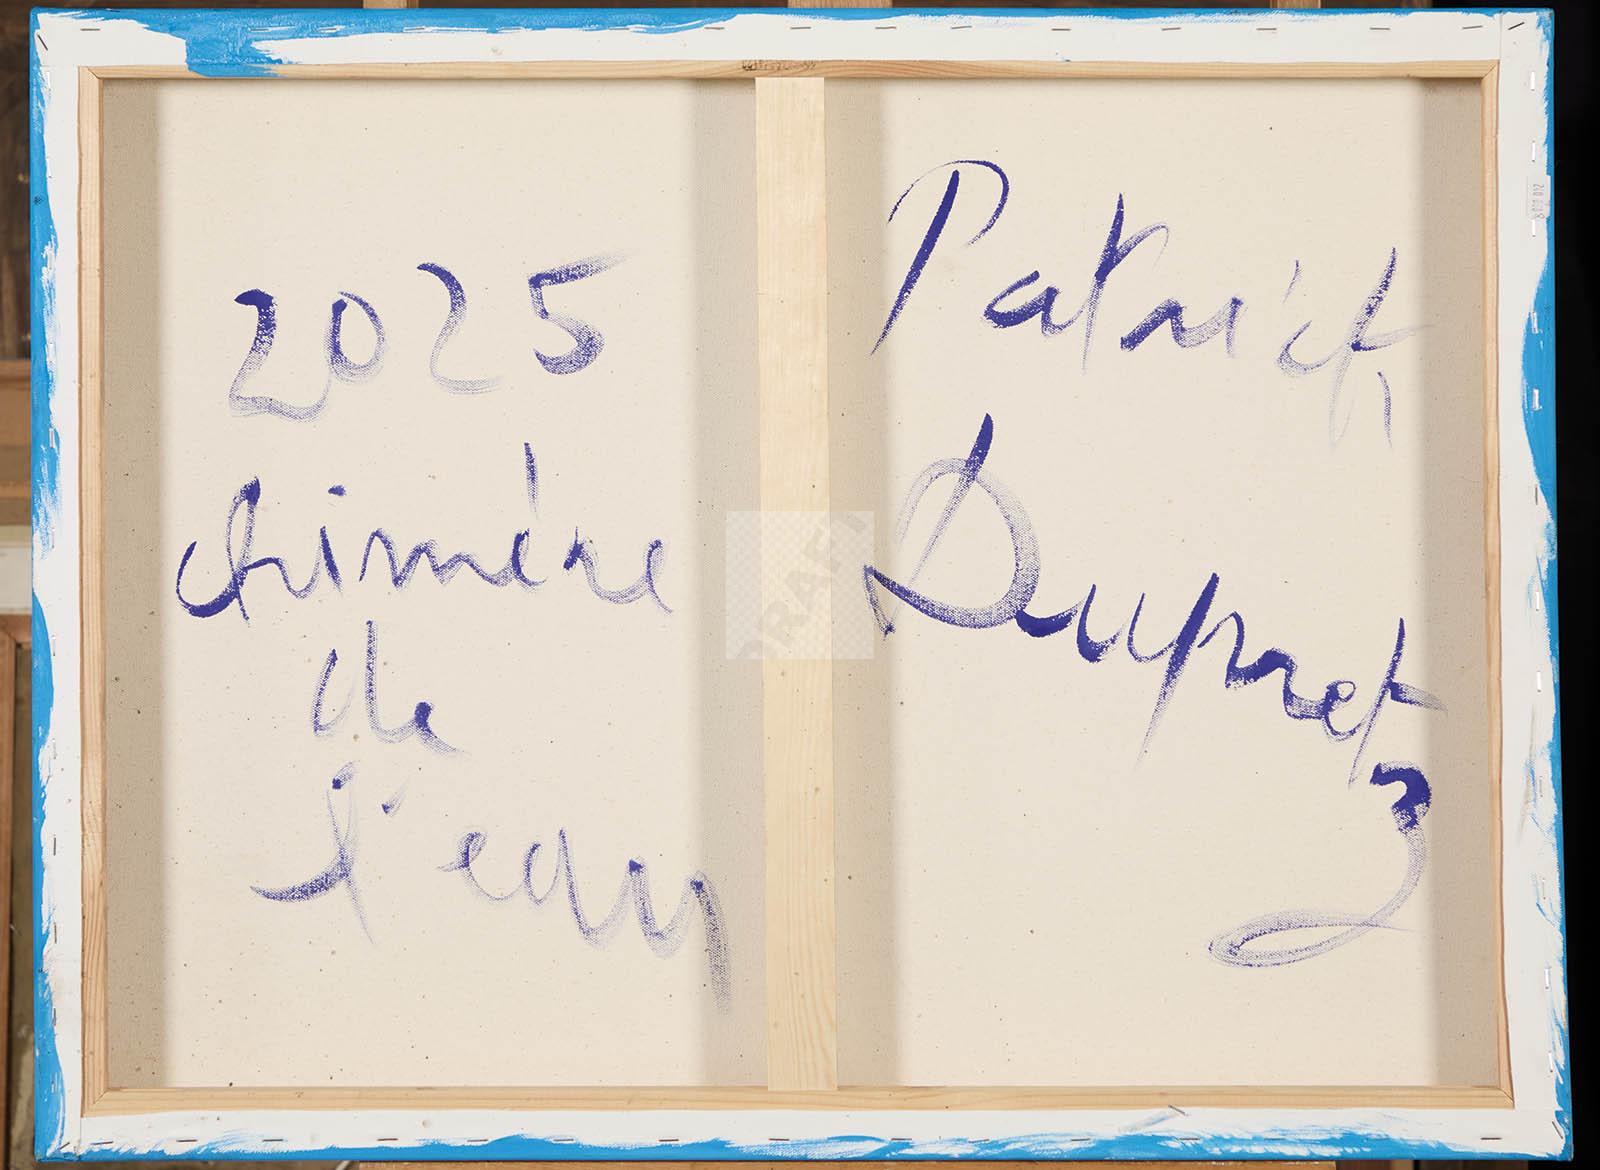 2025
chimère
de
l'eau
Patrick
Dupret
DRAFT